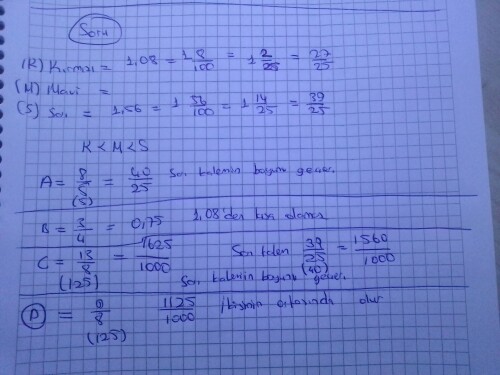 Soru
(K) Kırmızı = 1,08 = 1 8/100 = 1 2/25 = 27/25
(M) Mavi =
(S) Sarı = 1,56 = 1 56/100 = 1 14/25 = 39/25
K < M < S
A = 8/5 = 40/25 Sarı kalemin boyunu geçer.
(5)
B = 3/4 = 0,75 1,08'den kısa olamaz
C = 13/8 = 1625/1000 Sarı kalem 39/25 = 1560/1000
(125) (40)
Sarı kalemin boyunu geçer.
D = 9/8 1125/1000 İkisinin ortasında olur
(125)